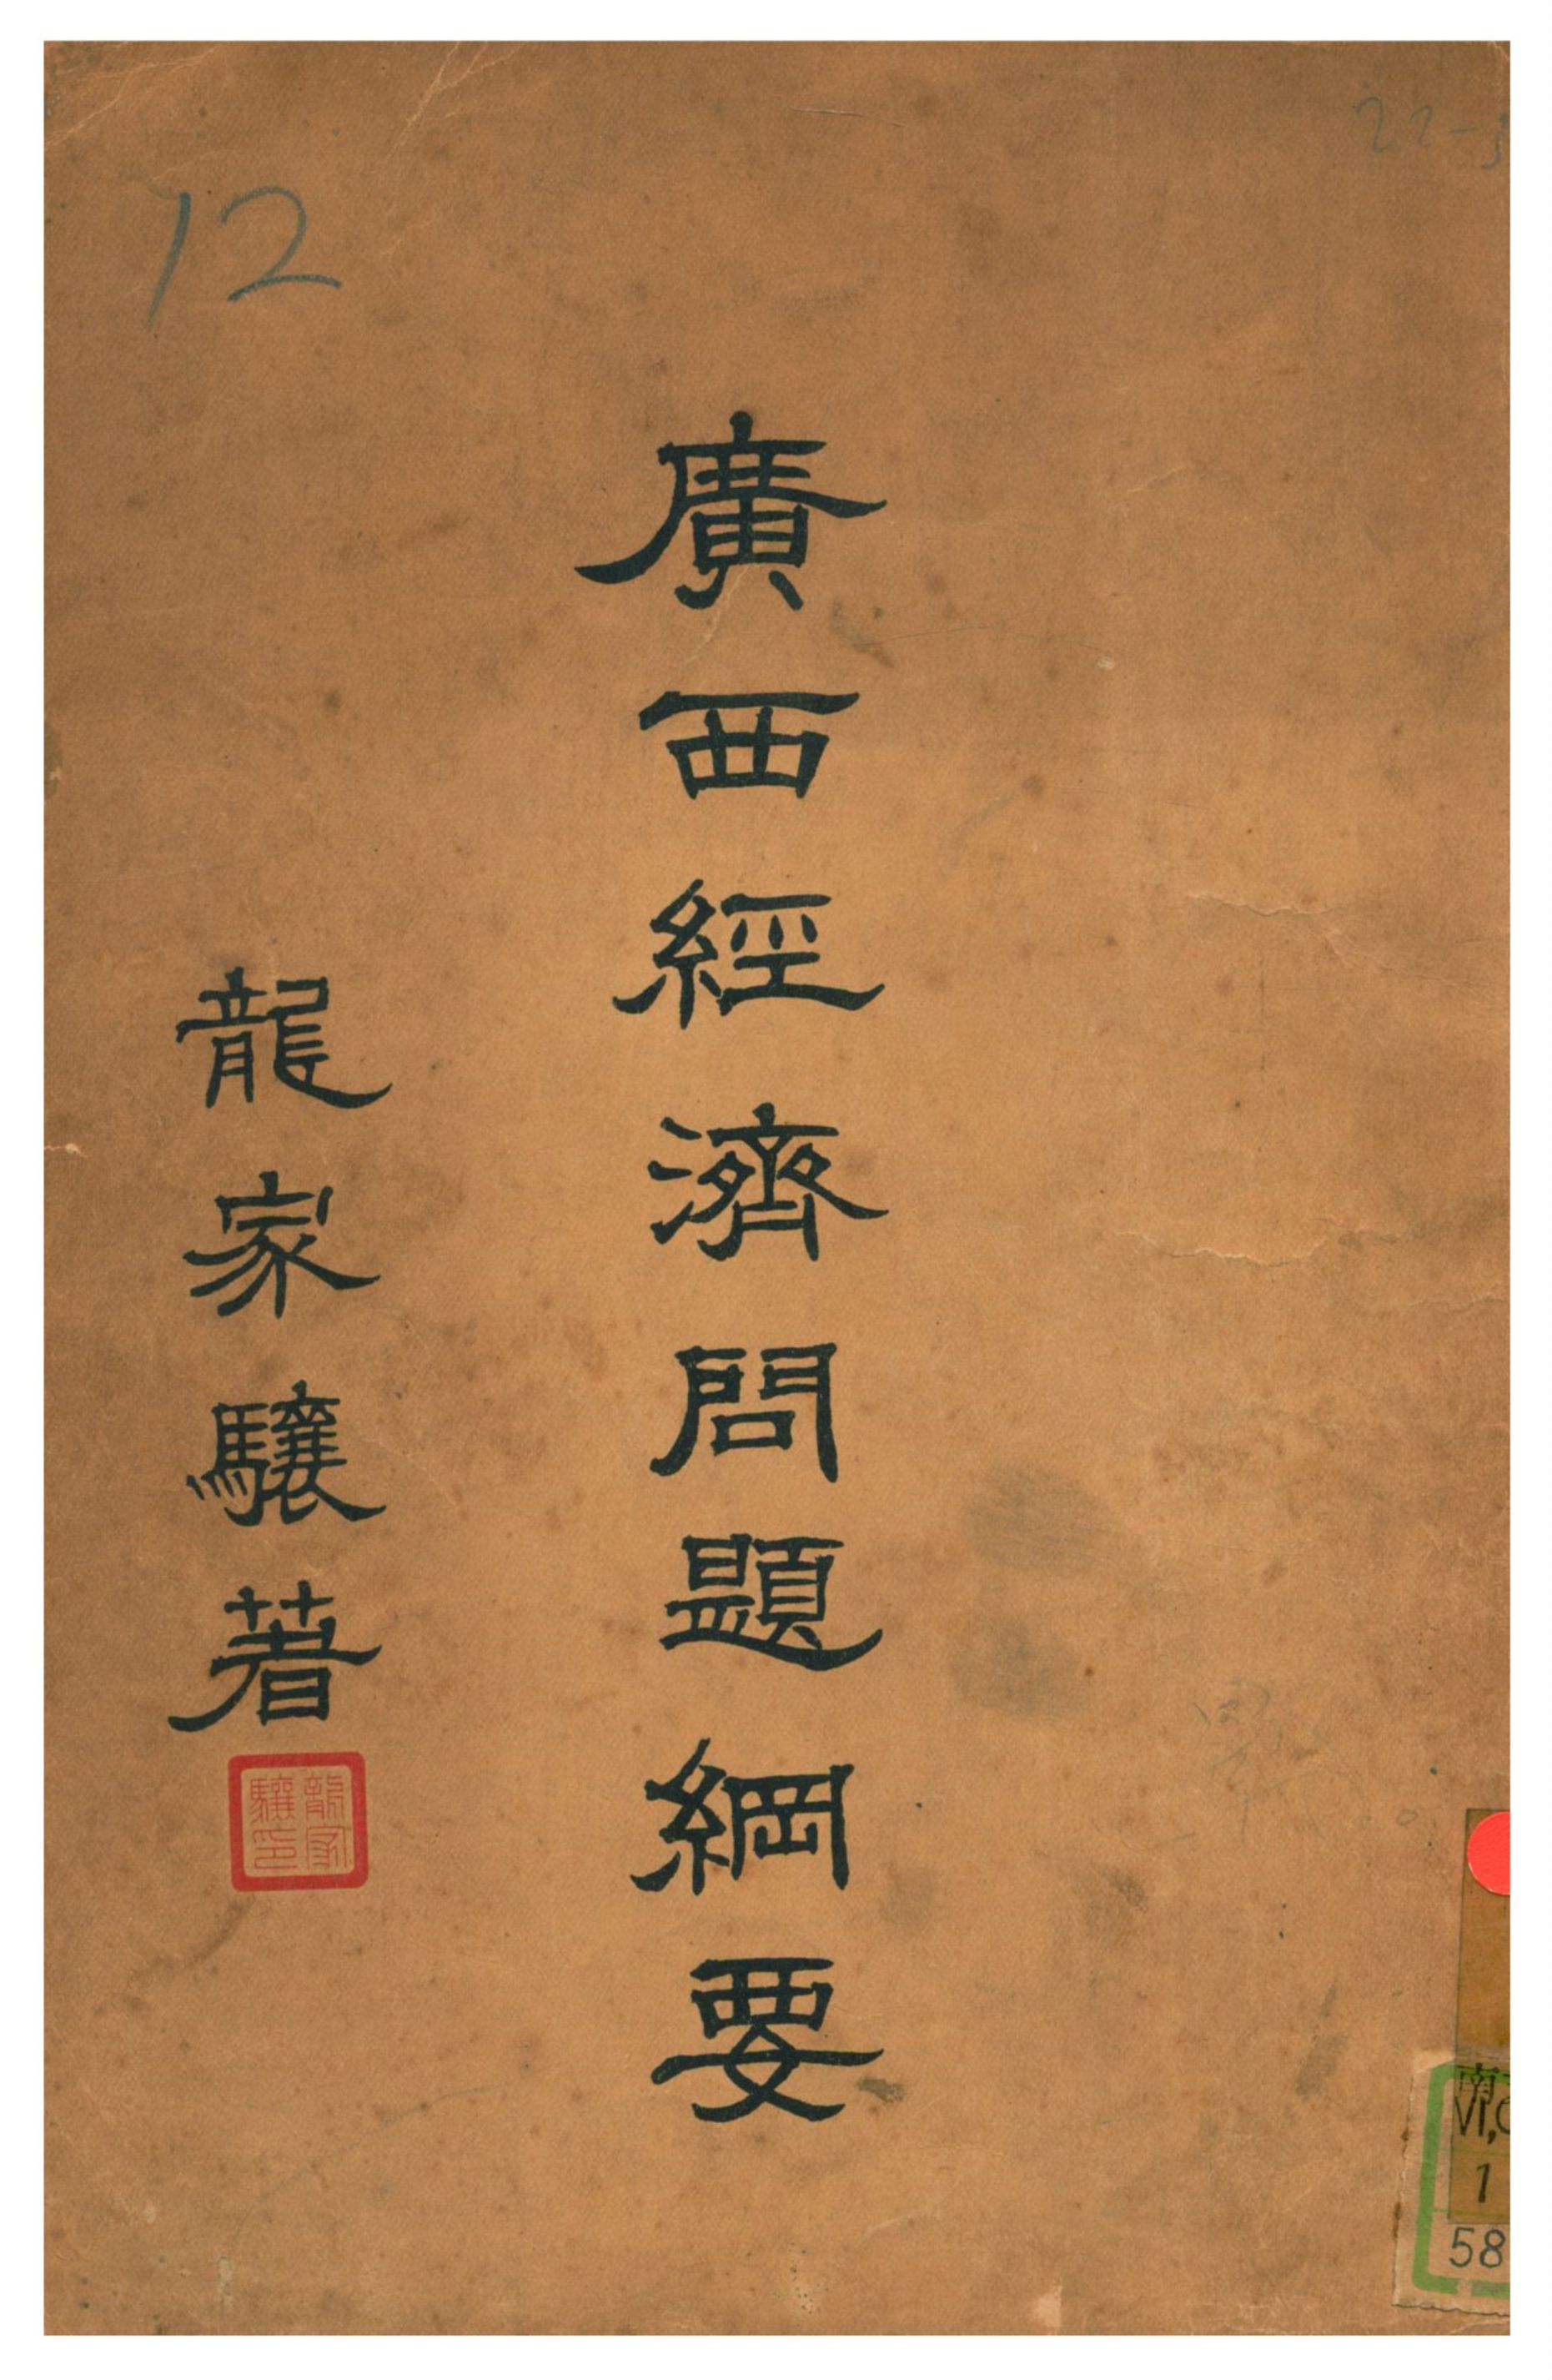 廣西經濟問題綱要
龍家驤著
龍家
驤印
12
22-
南
VI,
1
58